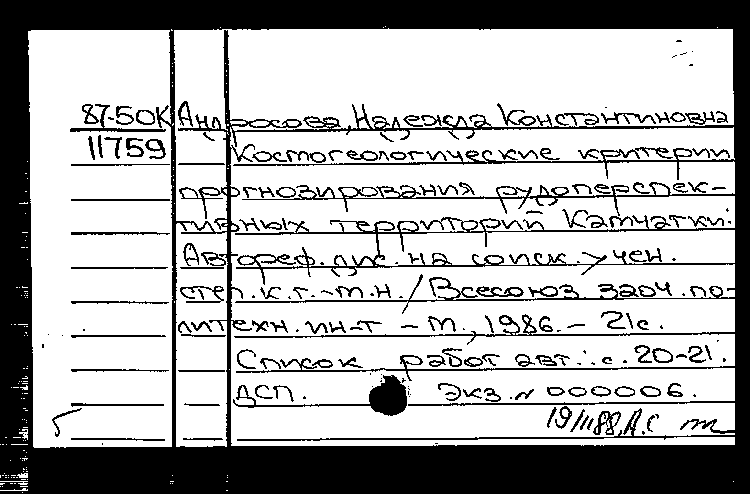 87-50К Андросова, Надежда Константиновна
11759 Космогеологические критерии
прогнозирования рудоперспек-
тивных территорий Камчатки:
Автореф. дис. на соиск. учен.
степ. к.г.-м.н. / Всесоюз. заоч. по-
литехн. ин-т - М., 1986. - 21с.
Список работ авт.: с. 20-21.
ДСП. Экз. № 000006.